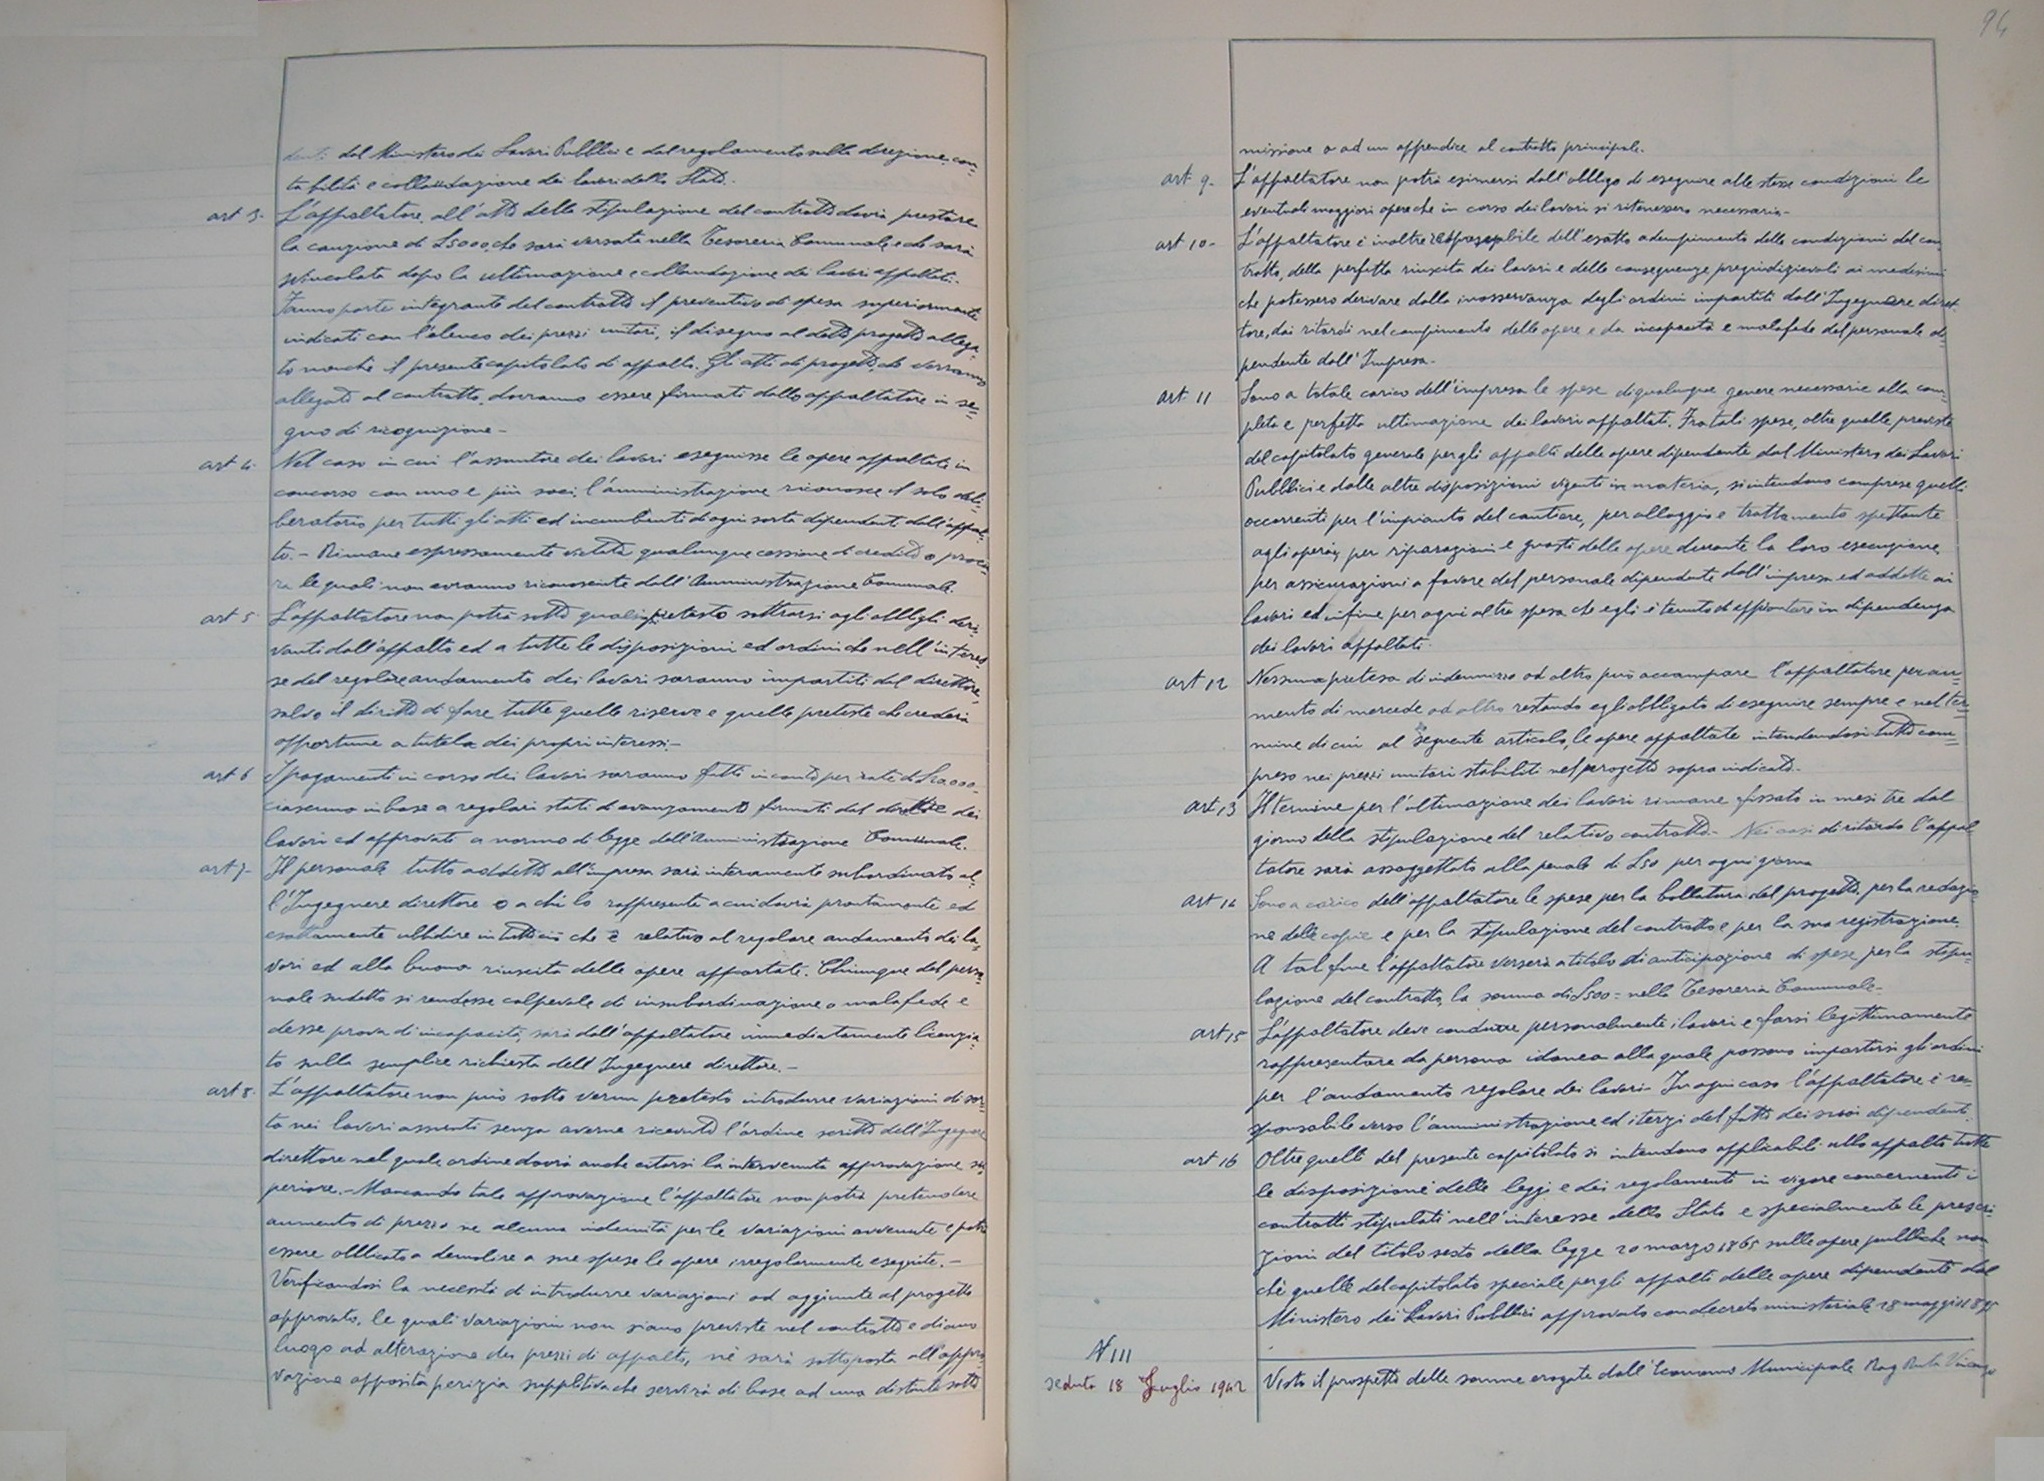 denti dal Ministero dei Lavori Pubblici e dal regolamento sulla direzione, con-
tabilità e collaudazione dei lavori dello Stato.
art 3- L'appaltatore, all'atto della stipulazione del contratto dovrà prestare
la cauzione di L5000, che sarà versata nella Tesoreria Comunale e che sarà
svincolata dopo la ultimazione e collaudazione dei lavori appaltati.
Fanno parte integrante del contratto il preventivo di spesa superiormente
indicati con l'elenco dei prezzi unitari, il disegno al detto progetto allega-
to nonché il presente capitolato di appalto. Gli atti di progetto, che verranno
allegati al contratto, dovranno essere firmati dallo appaltatore in se-
gno di ricognizione-
art 4. Nel caso in cui l'assuntore dei lavori eseguisse le opere appaltate in
concorso con uno e più soci, l'amministrazione riconosce il solo deli-
beratario per tutti gli atti ed incumbenti di ogni sorta dipendenti dall'appal-
to.- Rimane espressamente vietata qualunque cessione di credito o procu-
ra le quali non avranno riconosciute dall'Amministrazione Comunale.
art 5 L'appaltatore non potrà sotto qualsi pretesto sottrarsi agli obblighi deri-
vanti dall'appalto ed a tutte le disposizioni ed ordini che nell'interes-
se del regolare andamento dei lavori saranno impartiti dal direttore,
salvo il diritto di fare tutte quelle riserve e quelle proteste che crederà
opportune a tutela dei propri interessi.-
art 6 I pagamenti in corso dei lavori saranno fatti in conto per rate di L20.000-
ciascuno in base a regolari stati di avanzamento firmati dal direttore dei
lavori ed approvati a norma di legge dall'Amministrazione Comunale.
art 7- Il personale tutto addetto all'impresa sarà interamente subordinato al-
l'Ingegnere direttore o a chi lo rappresenta a cui dovrà prontamente ed
esattamente ubbidire in tutto ciò che è relativo al regolare andamento dei la-
vori ed alla buona riuscita delle opere appaltate. Chiunque del perso-
nale sudetto si rendesse colpevole di insubordinazione o malafede e
desse prova di incapacità, sarà dall'appaltatore immediatamente licenzia-
to sulla semplice richiesta dell'Ingegnere direttore.-
art 8. L'appaltatore non può sotto verun pretesto introdurre variazioni di sor-
ta nei lavori assunti senza averne ricevuto l'ordine scritto dell'Ingegnere
direttore nel quale ordine dovrà anche citarsi la intervenuta approvazione su-
periore.- Mancando tale approvazione l'appaltatore non potrà pretendere
aumento di prezzo ne alcuna indennità per le variazioni avvenute e potrà
essere obblicato a demolire a sue spese le opere irregolarmente eseguite.-
Verificandosi la necessità di introdurre variazioni ad aggiunte al progetto
approvato, le quali variazioni non siano previste nel contratto e diano
luogo ad alterazione dei prezzi di appalto, nè sarà sottoposta all'appro-
vazione apposita perizia supplitiva che servirà di base ad una distinta sotto
94
missione o ad un appendice al contratto principale.
art 9- L'appaltatore non potrà esimersi dall'obbligo di eseguire alle stesse condizioni le
eventuali maggiori opere che in corso dei lavori si ritenessero necessarie-
art 10- L'appaltatore è inoltre responsabile dell'esatto adempimento delle condizioni del con-
tratto, della perfetta riuscita dei lavori e delle conseguenze pregiudizievoli ai medesimi
che potessero derivare dalla inosservanza degli ordini impartiti dall'Ingegnere diret-
tore, dai ritardi nel compimento delle opere e da incapacità e malafede del personale di-
pendente dall'Impresa-
art 11 Sono a totale carico dell'impresa le spese di qualunque genere necessarie alla com-
pleta e perfetta ultimazione dei lavori appaltati. Fra tali spese, oltre quelle previste
dal capitolato generale per gli appalti delle opere dipendente dal Ministero dei Lavori
Pubblici e dalle altre disposizioni vigenti in materia, si intendono comprese quelli
occorrenti per l'impianto del cantiere, per alloggio e trattamento spettante
agli operai, per riparazioni e guasti delle opere durante la loro esecuzione,
per assicurazioni a favore del personale dipendente dall'impresa ed addetto ai
lavori ed infine per ogni altra spesa che egli è tenuto di affrontare in dipendenza
dei lavori appaltati.
art 12 Nessuna pretesa di indennizzo od altro può accampare l'appaltatore per au-
mento di mercede od altro restando egli obbligato di eseguire sempre e nel ter-
mine di cui al seguente articolo, le opere appaltate intendendosi tutto com-
preso nei prezzi unitari stabiliti nel progetto sopra indicato.
art 13 Il termine per l'ultimazione dei lavori rimane fissato in mesi tre dal
giorno della stipulazione del relativo contratto- Nei casi di ritardo l'appal-
tatore sarà assoggettato alla penale di L50 per ogni giorno
art 14 Sono a carico dell'appaltatore le spese per la bollatura del progetto, per la redazio-
ne delle copie e per la stipulazione del contratto e per la sua registrazione.
A tal fine l'appaltatore verserà a titolo di anticipazione di spese per la stipu-
lazione del contratto, la somma di L500= nella Tesoreria Comunale-
art 15 L'appaltatore deve condurre personalmente i lavori e farsi legittimamente
rappresentare da persona idonea alla quale possano impartirsi gli ordini
per l'andamento regolare dei lavori- In ogni caso l'appaltatore è re-
sponsabile verso l'amministrazione ed i terzi del fatto dei suoi dipendenti.
art 16 Oltre quelle del presente capitolato si intendono applicabili allo appalto tutte
le disposizione delle leggi e dei regolamenti in vigore concernenti i
contratti stipulati nell'interesse dello Stato e specialmente le prescri-
zioni del titolo sesto della legge 20 marzo 1865 sulle opere pubbliche non
chè quelle del capitolato speciale per gli appalti delle opere dipendenti dal
Ministero dei Lavori Pubblici approvato con decreto ministeriale 28 maggio 1895
N III
seduta 18 Luglio 1942 Visto il prospetto delle somme erogate dall'Economo Municipale Rag